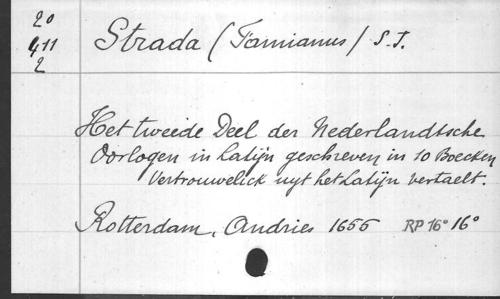 20
411
2
Strada (Famianus) S.J.
Het tweede Deel der Nederlandtsche
Oorlogen in Latijn geschreven in 10 Boecken
Vertrouwelick uyt het Latijn vertaelt.
Rotterdam, Andries 1655 RP 16° 16°